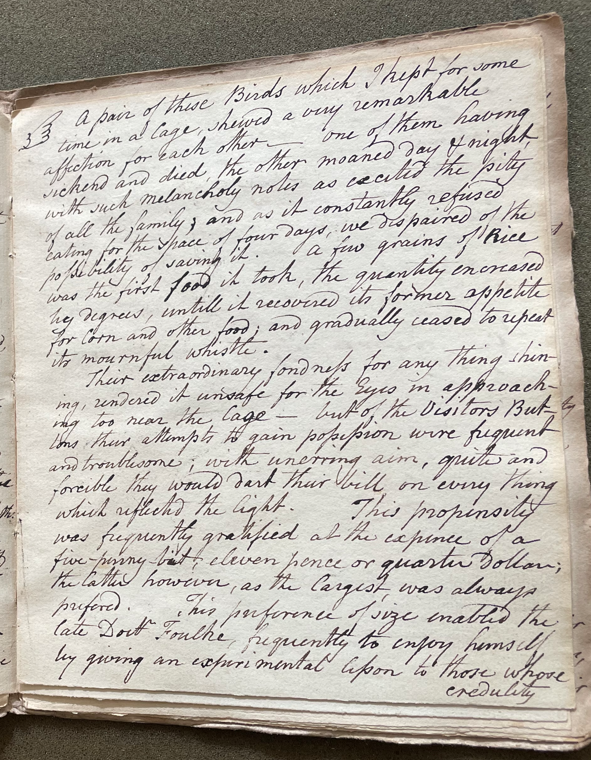 33 A pair of these Birds which I kept for some
time in a Cage, shewed a very remarkable
affection for each other — one of them having
sickend and died, the other moaned day & night,
with such melancholy notes as excited the pity
of all the family; and as it constantly refused
eating for the space of four days, we dispaired of the
possibility of saving it. A few grains of Rice
was the first food it took, the quantity encreased
by degrees, untill it recovered its former appetite
for Corn and other food; and gradually ceased to repeat
its mournful whistle.
Their extraordinary fondness for any thing shin-
ing, rendered it unsafe for the Eyes in approach-
ing too near the Cage — but of the Visitors But-
tons, their attempts to gain possession were frequent
and troublesome; with unerring aim, quite and
forcible they would dart their bill on every thing
which reflectd the light. This propensity
was frequently gratified at the expence of a
five-penny bit; eleven pence or quarter Dollar;
the latter however, as the largest, was always
prefered. This preference of size enabled the
late Doctr Foulke, frequently to enjoy himself
by giving an experimental lesson to those whose
credulity